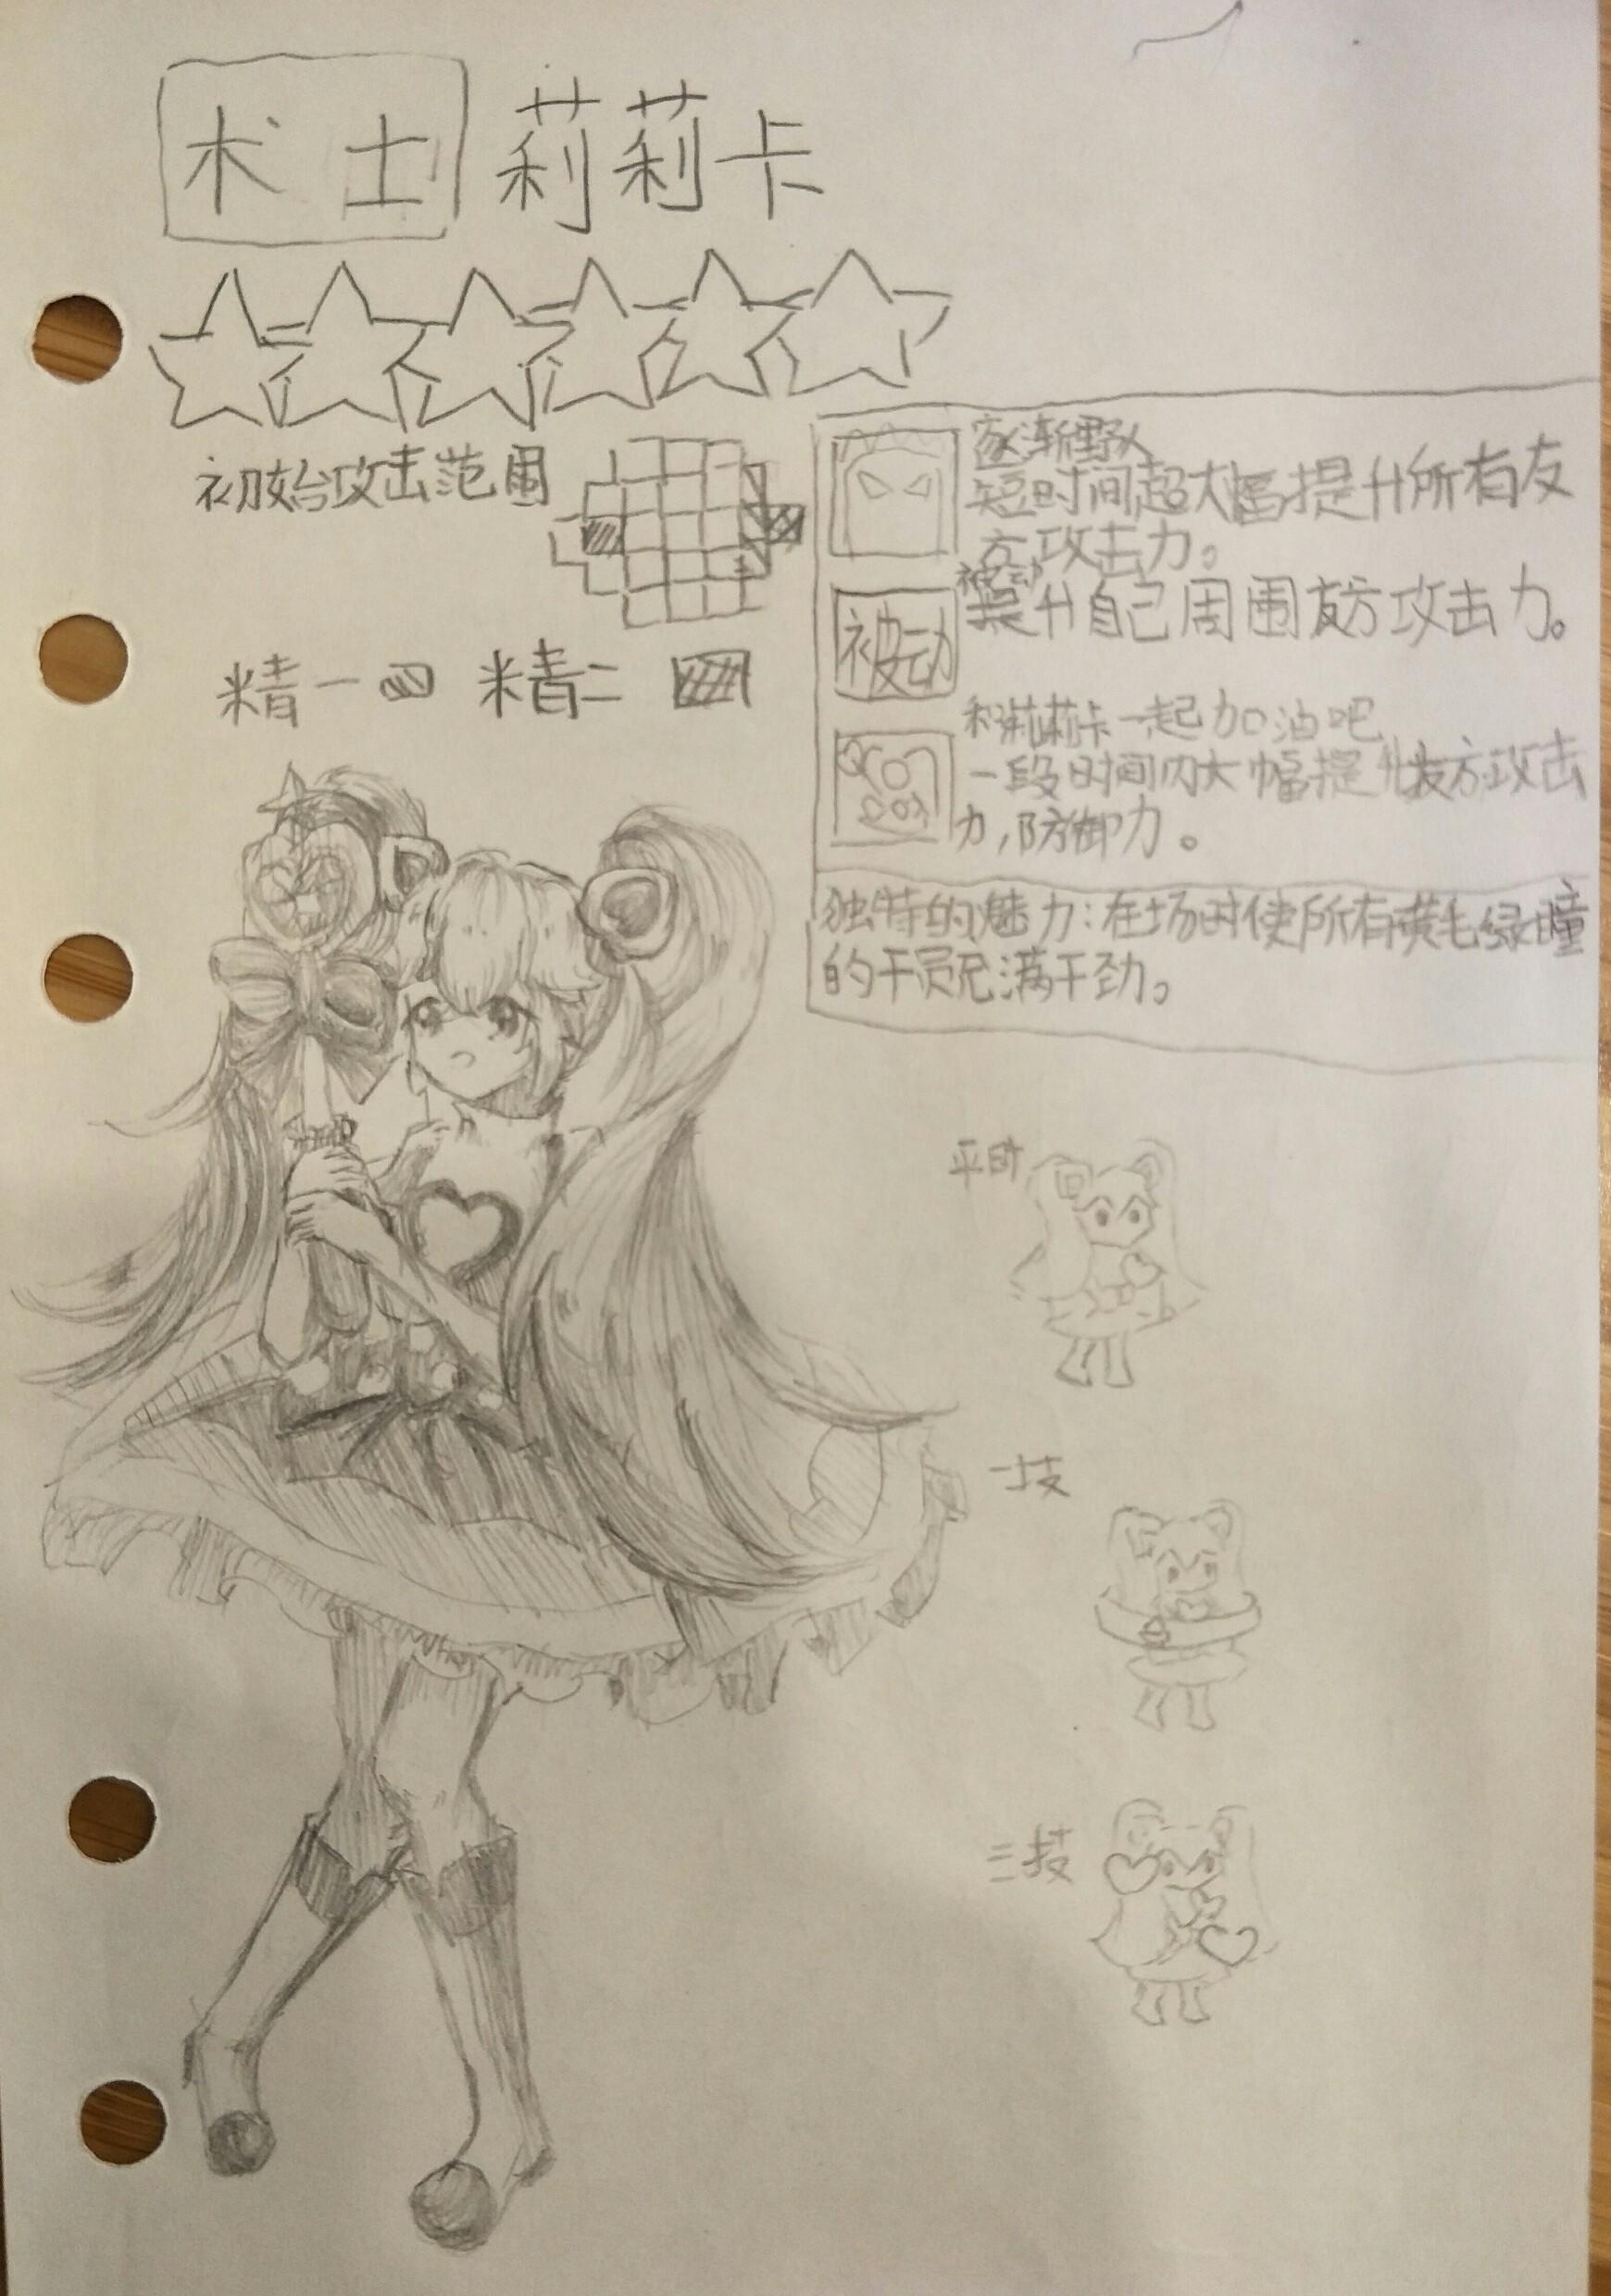 术士 莉莉卡
初始攻击范围
精一 精二
逐渐野人
短时间超大幅提升所有友
方攻击力。
被动
被动
提升自己周围友方攻击力。
和莉莉卡一起加油吧
一段时间内大幅提升友方攻击
力,防御力。
独特的魅力:在场时使所有黄毛绿瞳
的干员充满干劲。
平时
一技
三技